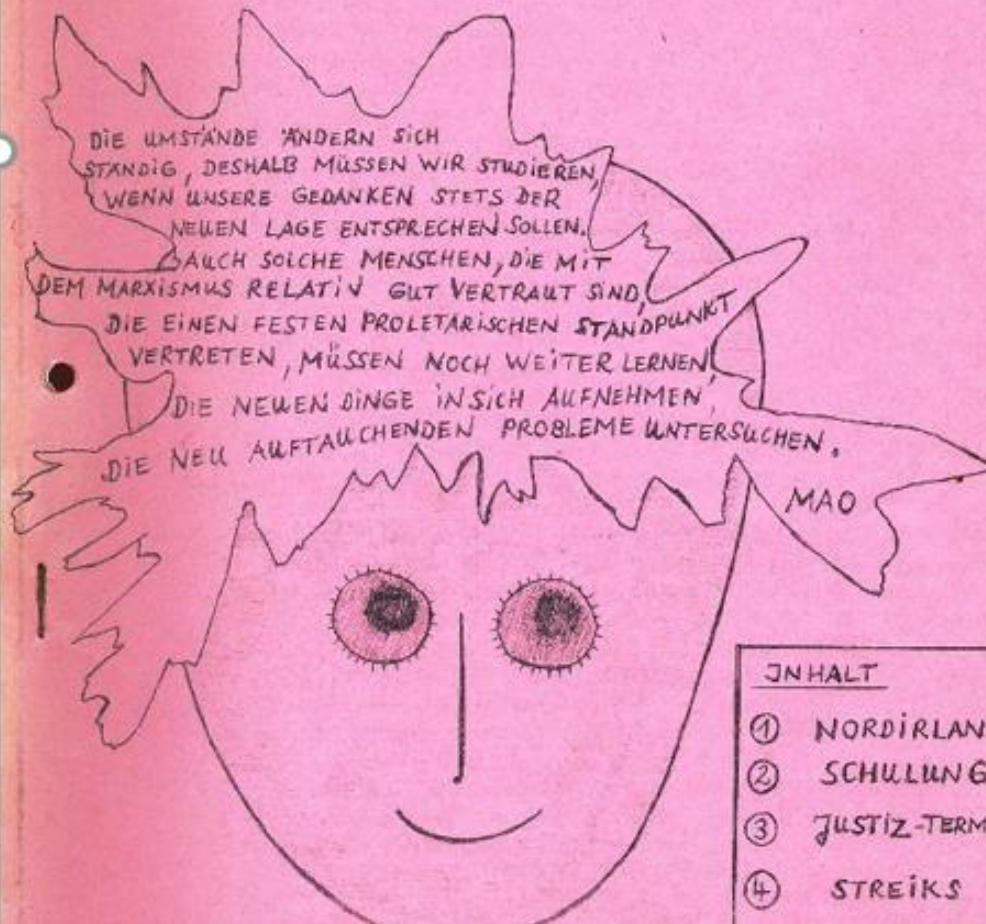 DIE UMSTÄNDE ÄNDERN SICH
STÄNDIG, DESHALB MÜSSEN WIR STUDIEREN,
WENN UNSERE GEDANKEN STETS DER
NEUEN LAGE ENTSPRECHEN SOLLEN.
AUCH SOLCHE MENSCHEN, DIE MIT
DEM MARXISMUS RELATIV GUT VERTRAUT SIND,
DIE EINEN FESTEN PROLETARISCHEN STANDPUNKT
VERTRETEN, MÜSSEN NOCH WEITER LERNEN,
DIE NEUEN DINGE IN SICH AUFNEHMEN,
DIE NEU AUFTAUCHENDEN PROBLEME UNTERSUCHEN.
MAO
INHALT
① NORDIRLAN
② SCHULUNG
③ JUSTIZ-TERM
④ STREIKS